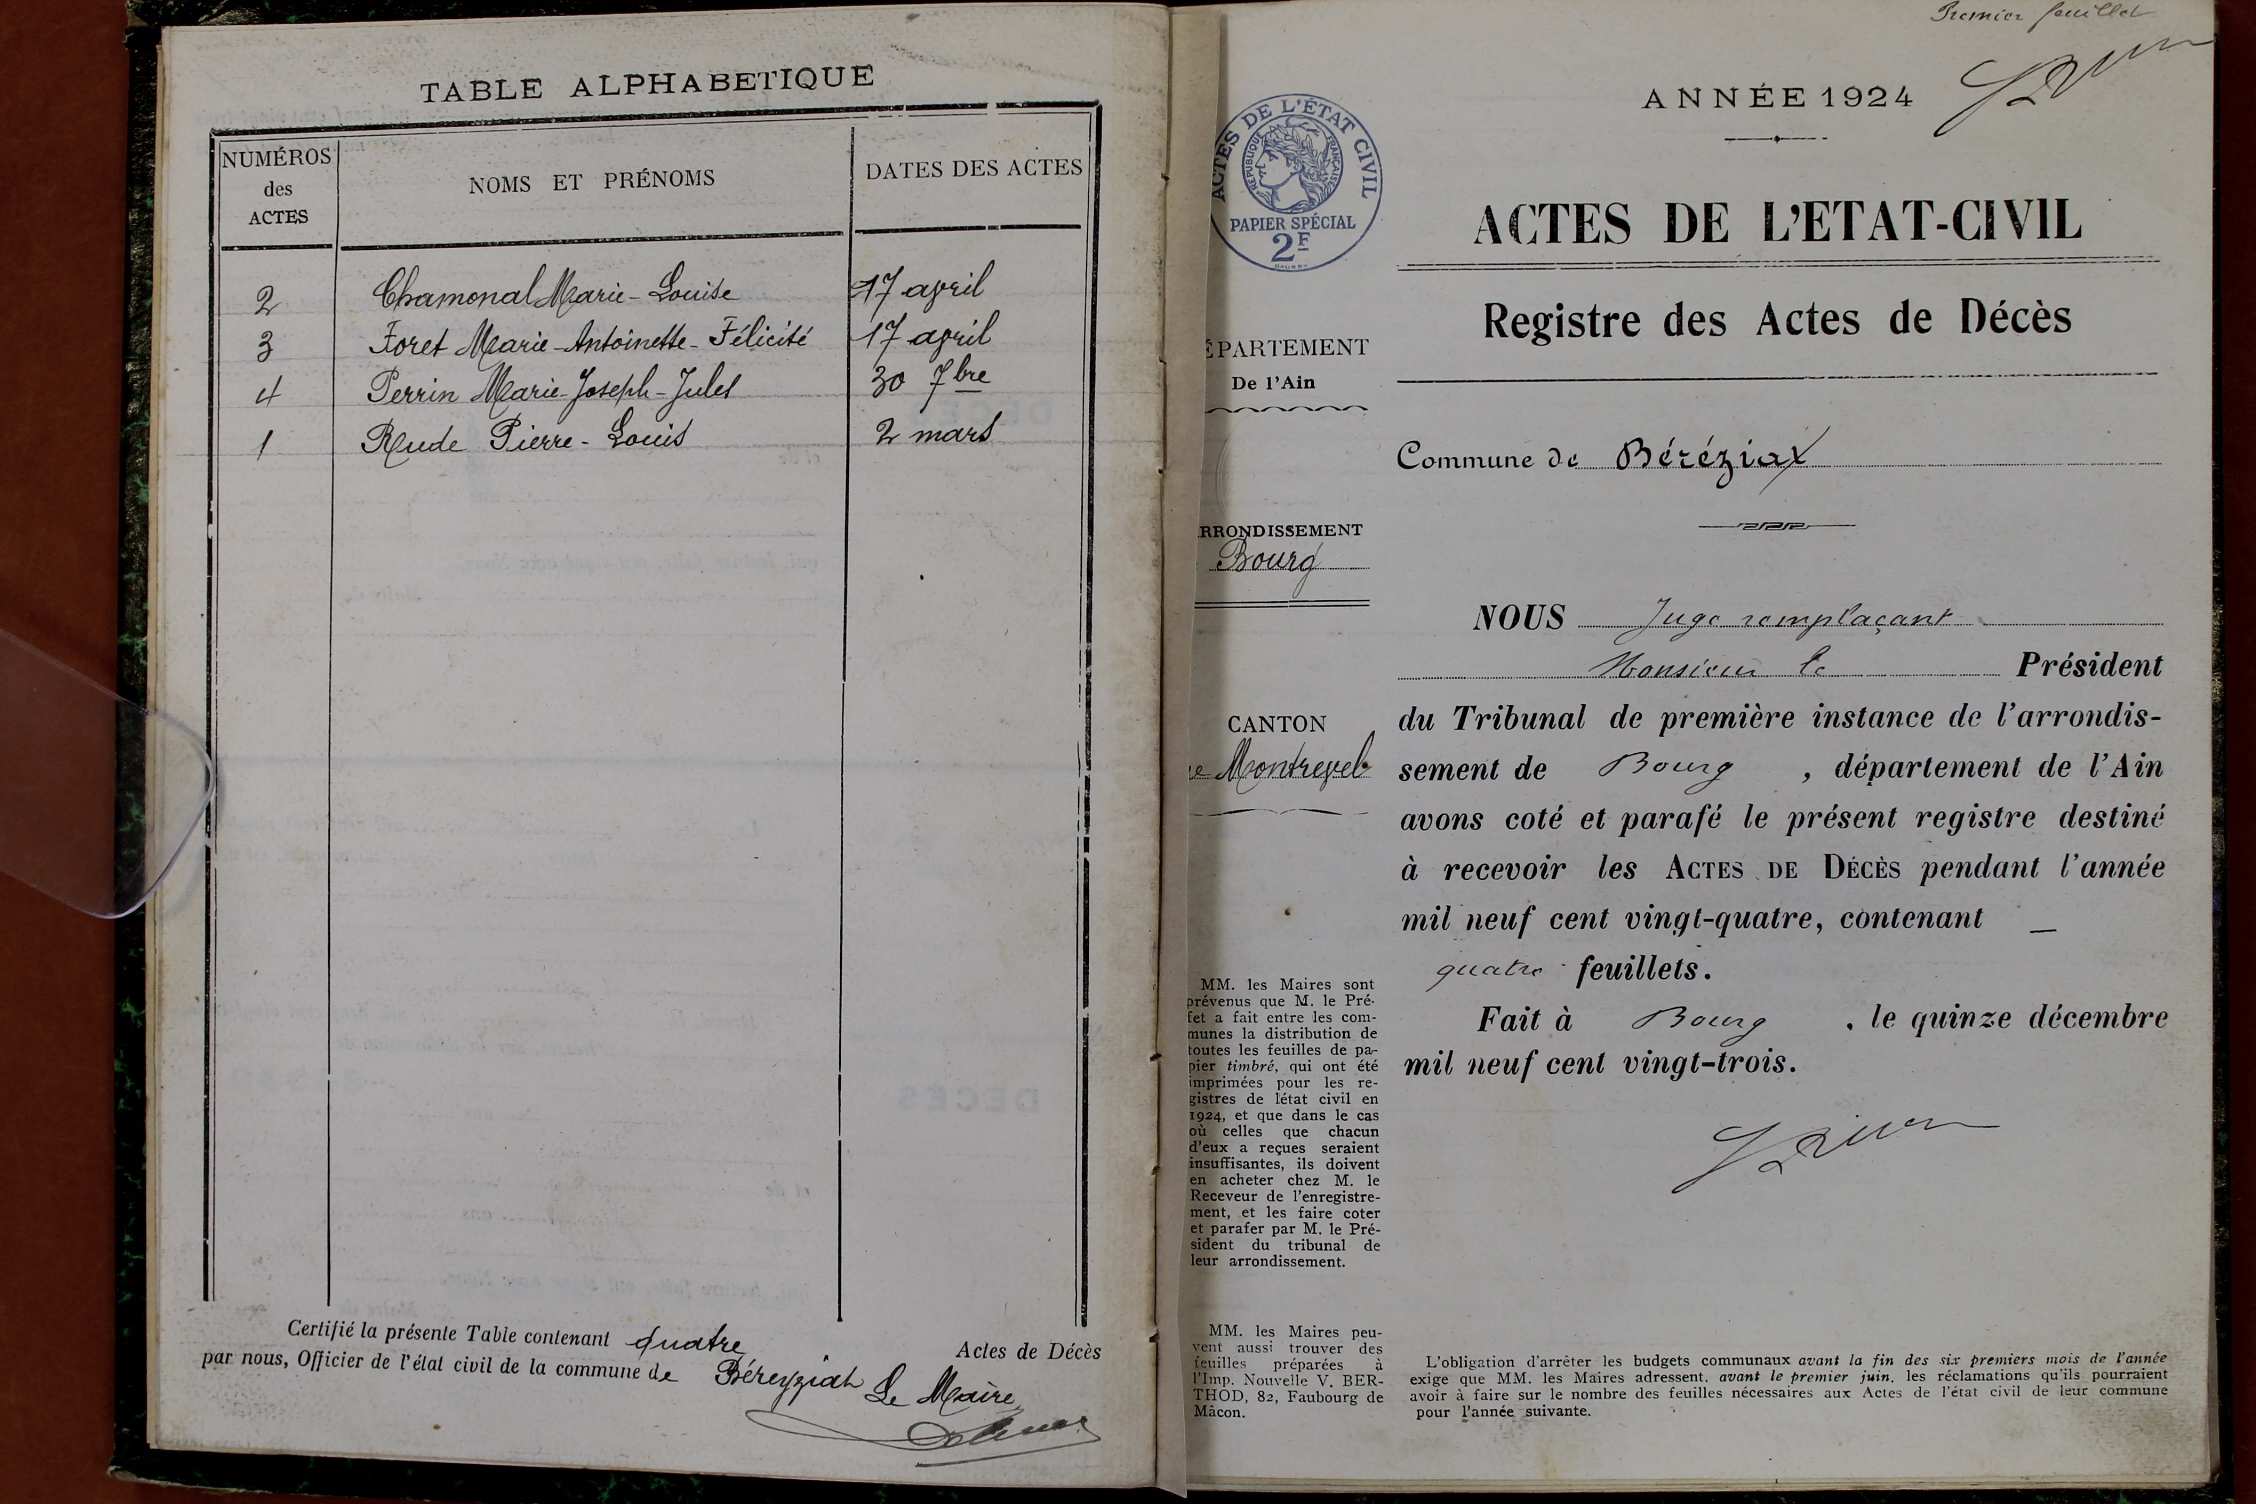 TABLE ALPHABETIQUE
NUMÉROS
des
ACTES
NOMS ET PRÉNOMS
DATES DES ACTES
2 Chamonal Marie-Louise 17 avril
3 Foret Marie-Antoinette-Félicité 17 avril
4 Perrin Marie-Joseph-Jules 30 7bre
1 Rude Pierre-Louis 2 mars
Certifié la présente Table contenant quatre Actes de Décès
par nous, Officier de l'état civil de la commune de Béreyziat
Le Maire
Premier feuillet
ANNÉE 1924
ACTES DE L'ÉTAT CIVIL
RÉPUBLIQUE FRANÇAISE
PAPIER SPÉCIAL
2F
ACTES DE L'ETAT-CIVIL
Registre des Actes de Décès
ÉPARTEMENT
De l'Ain
Commune de Béréziat
RRONDISSEMENT
Bourg
CANTON
de Montrevel
NOUS Juge remplaçant
Monsieur le Président
du Tribunal de première instance de l'arrondis-
sement de Bourg, département de l'Ain
avons coté et parafé le présent registre destiné
à recevoir les ACTES DE DÉCÈS pendant l'année
mil neuf cent vingt-quatre, contenant —
quatre feuillets.
Fait à Bourg, le quinze décembre
mil neuf cent vingt-trois.
MM. les Maires sont
prévenus que M. le Pré-
fet a fait entre les com-
munes la distribution de
toutes les feuilles de pa-
pier timbré, qui ont été
imprimées pour les re-
gistres de létat civil en
1924, et que dans le cas
où celles que chacun
d'eux a reçues seraient
insuffisantes, ils doivent
en acheter chez M. le
Receveur de l'enregistre-
ment, et les faire coter
et parafer par M. le Pré-
sident du tribunal de
leur arrondissement.
MM. les Maires peu-
vent aussi trouver des
feuilles préparées à
l'Imp. Nouvelle V. BER-
THOD, 82, Faubourg de
Mâcon.
L'obligation d'arrêter les budgets communaux avant la fin des six premiers mois de l'année
exige que MM. les Maires adressent, avant le premier juin, les réclamations qu'ils pourraient
avoir à faire sur le nombre des feuilles nécessaires aux Actes de l'état civil de leur commune
pour l'année suivante.